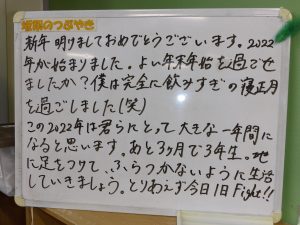 塚原のつぶやき
新年 明けましておめでとうございます。2022
年が始まりました。よい年末年始を過ごせ
ましたか？僕は完全に飲みすぎの寝正月
を過ごしました(笑)
この2022年は君らにとって大きな一年間に
なると思います。あと3ヶ月で3年生。地
に足をつけて、ふらつかないように生活
していきましょう。とりあえず今日1日Fight!!